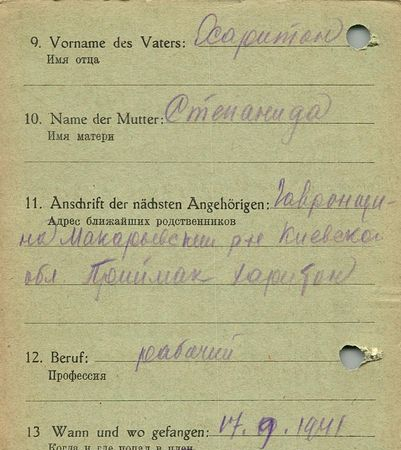 9. Vorname des Vaters: Харитон
Имя отца
10. Name der Mutter: Степанида
Имя матери
11. Anschrift der nächsten Angehörigen: Гавронщи-
Адрес ближайших родственников
на Макарьевский р-н Киевско
обл Приймак Харитон
12. Beruf: рабочий
Профессия
13 Wann und wo gefangen: 17. 9. 1941
Когда и где попал в плен